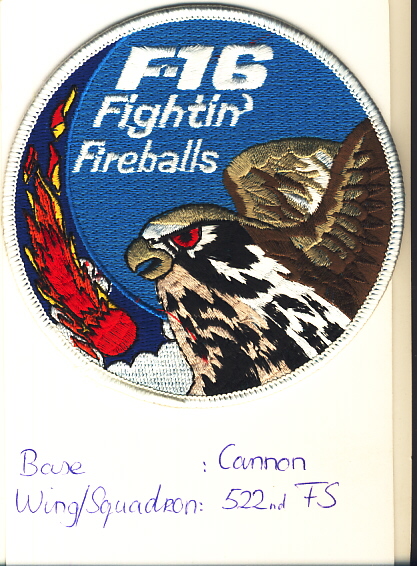 F-16
Fightin'
Fireballs
Base : Cannon
Wing/Squadron: 522nd FS